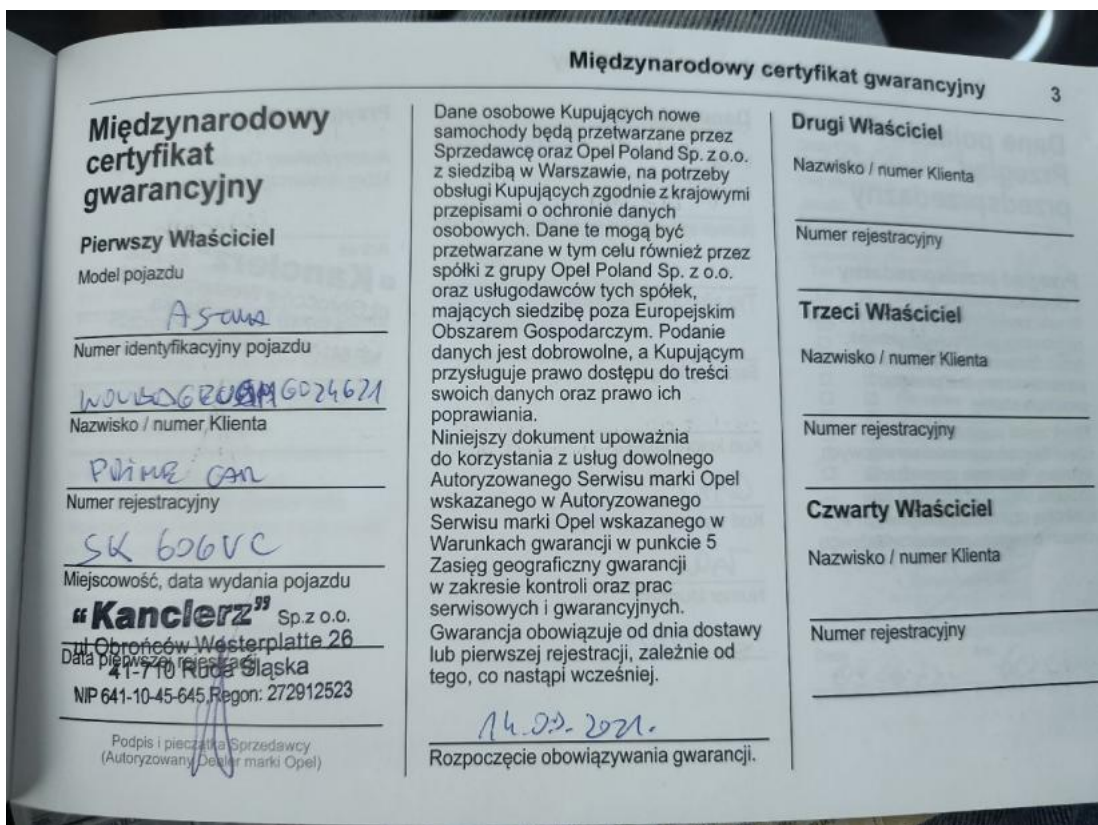 Międzynarodowy certyfikat gwarancyjny 3
Międzynarodowy
certyfikat
gwarancyjny
Pierwszy Właściciel
Model pojazdu
Astra
Numer identyfikacyjny pojazdu
Nazwisko / numer Klienta
PRIME CAR
Numer rejestracyjny
SK 606VC
Miejscowość, data wydania pojazdu
"Kanclerz" Sp.z o.o.
ul.Obrońców Westerplatte 26
Data pierwszej rejestracji
41-710 Ruda Śląska
NIP 641-10-45-645,Regon: 272912523
Podpis i pieczątka Sprzedawcy
(Autoryzowany Dealer marki Opel)
Dane osobowe Kupujących nowe
samochody będą przetwarzane przez
Sprzedawcę oraz Opel Poland Sp. z o.o.
z siedzibą w Warszawie, na potrzeby
obsługi Kupujących zgodnie z krajowymi
przepisami o ochronie danych
osobowych. Dane te mogą być
przetwarzane w tym celu również przez
spółki z grupy Opel Poland Sp. z o.o.
oraz usługodawców tych spółek,
mających siedzibę poza Europejskim
Obszarem Gospodarczym. Podanie
danych jest dobrowolne, a Kupującym
przysługuje prawo dostępu do treści
swoich danych oraz prawo ich
poprawiania.
Niniejszy dokument upoważnia
do korzystania z usług dowolnego
Autoryzowanego Serwisu marki Opel
wskazanego w Autoryzowanego
Serwisu marki Opel wskazanego w
Warunkach gwarancji w punkcie 5
Zasięg geograficzny gwarancji
w zakresie kontroli oraz prac
serwisowych i gwarancyjnych.
Gwarancja obowiązuje od dnia dostawy
lub pierwszej rejestracji, zależnie od
tego, co nastąpi wcześniej.
Rozpoczęcie obowiązywania gwarancji.
Drugi Właściciel
Nazwisko / numer Klienta
Numer rejestracyjny
Trzeci Właściciel
Nazwisko / numer Klienta
Numer rejestracyjny
Czwarty Właściciel
Nazwisko / numer Klienta
Numer rejestracyjny